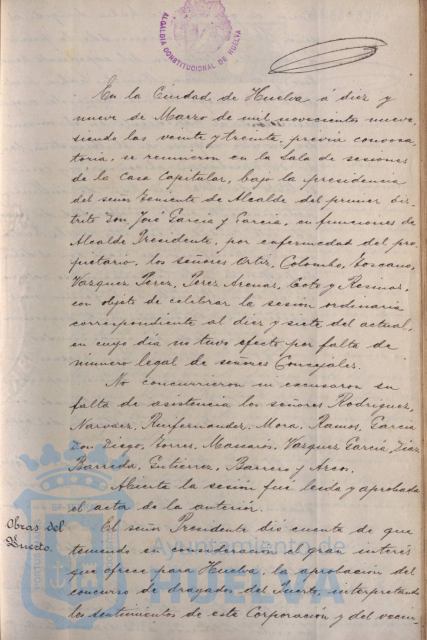 ALCALDIA CONSTITUCIONAL DE HUELVA
En la Ciudad de Huelva á diez y
nueve de Marzo de mil novecientos nueve,
siendo las veinte y treinta, previa convoca
toria, se reunieron en la Sala de sesiones
de la Casa Capitular, bajo la presidencia
del señor Teniente de Alcalde del primer dis
trito Don José García y García, en funciones de
Alcalde Presidente, por enfermedad del pro
pietario, los señores Ortiz, Colombo, Toscano,
Vazquez Perez, Perez Arenas, Coto y
con objeto de celebrar la sesión ordinaria
correspondiente al diez y siete del actual,
en cuyo día no tuvo efecto por falta de
número legal de señores Concejales.
No concurrieron ni excusaron su
falta de asistencia los señores Rodriguez,
Narvaez, Ruifernandez, Mora, Ramos, García
Don Diego, Torres, Mascarós, Vazquez García, Díaz
Barreda, Gutierrez, Barrero y
Abierta la sesión fué leida y aprobada
el acta de la anterior.
Obras del
Puerto.
El señor Presidente dió cuenta de que
teniendo en consideración el gran interés
que ofrece para Huelva, la aprobación del
concurso de dragados del Puerto, interpretando
los sentimientos de esta Corporación y del vecin
Ayuntamiento de
HUELVA